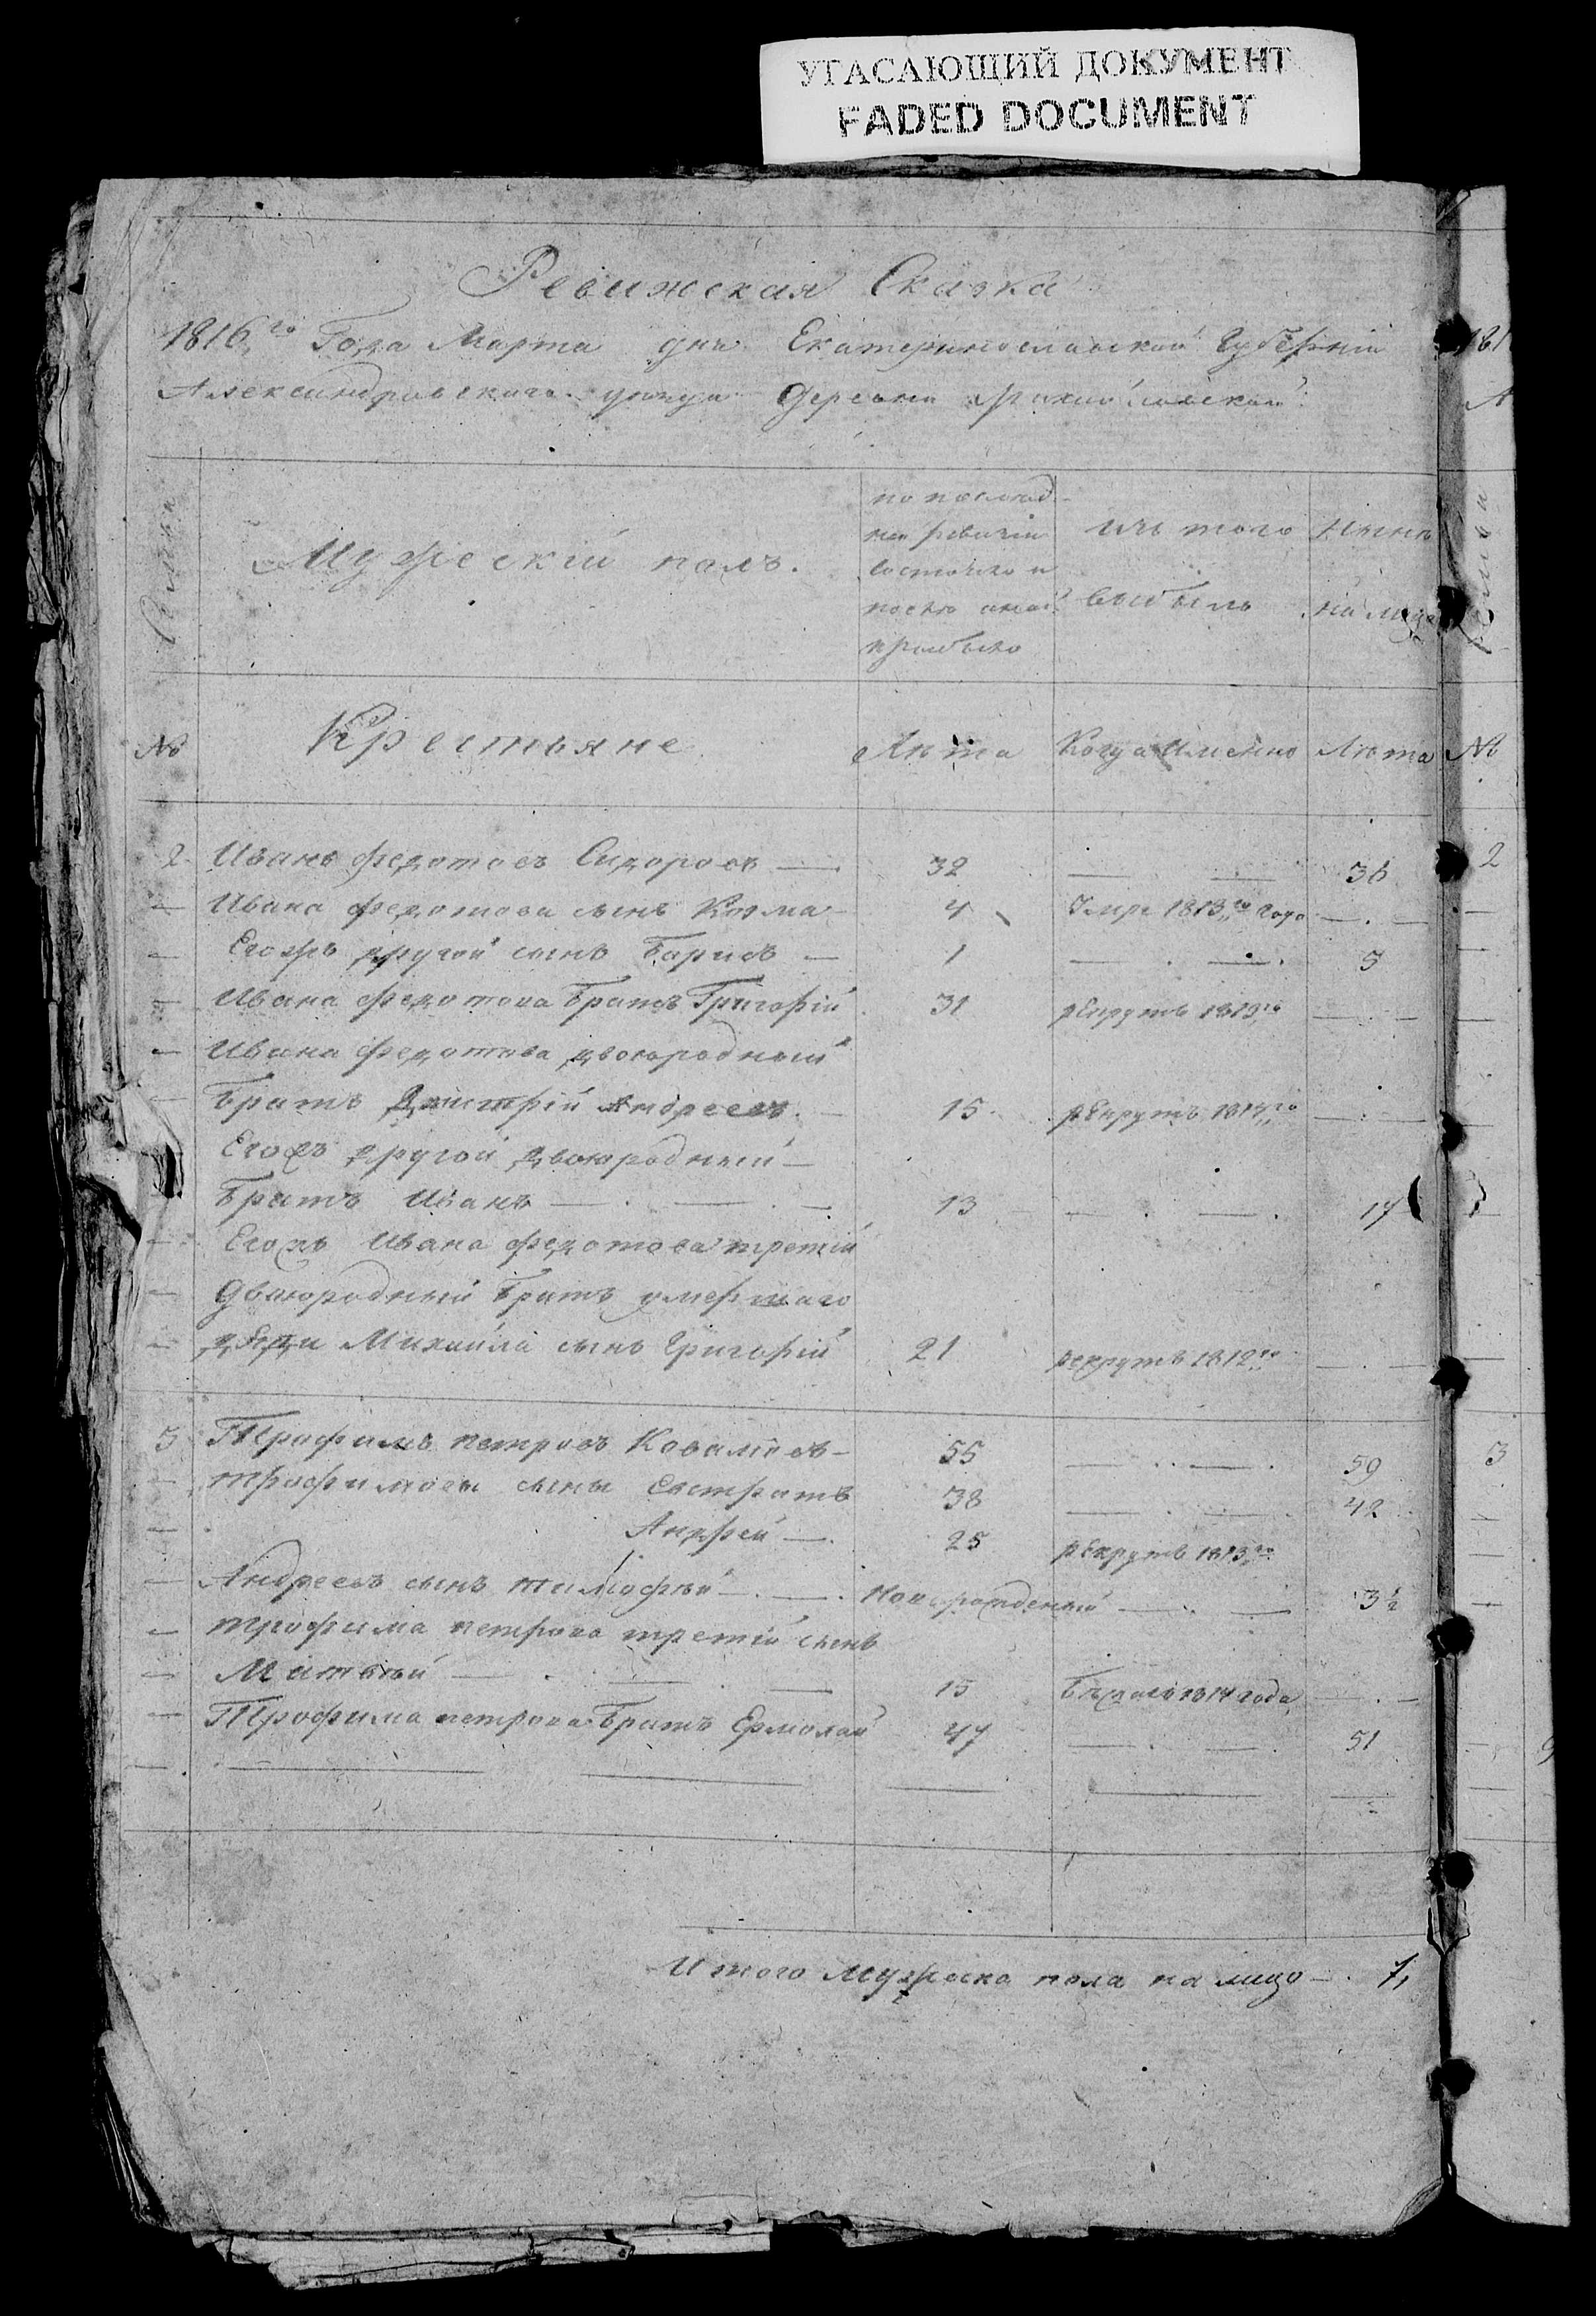 УГАСАЮЩИЙ ДОКУМЕНТ
FADED DOCUMENT
Ревижская Сказка
1816,го Года Марта дня Екатеринославской Губерніи
Александровского уезда деревни
Семьи
Мужескій полъ.
по послед-
ней ревизіи
состояло и
после оной
прибыло
Изъ того
выбыло
Ныне
на лицо
№
Крестьяне
Лѣта
Когда именно
Лѣта
№
2 Иванъ Федотовъ Сидоровъ — 32 — — 36 2
— Ивана Федотова сынъ Козма — 4 Умре 1813,го Года — . —
— Егожъ другой сынъ Борисъ — 1 — . — . 5
— Ивана Федотова братъ Григорій 31 рекрутъ 1813го — —
— Ивана Федотова двоюродный
— Братъ Дмитрій Андреевъ. — 15 рекрутъ 1814,го — .
Егожъ другой двоюродный —
Братъ Иванъ — . — — . 13 — . — . 17
— Егожъ Ивана Федотова третій
— Двоюродный Братъ умершаго
— дяди Михайла сынъ Григорій 21 рекрутъ 1812го — . —
3 Трофимъ петровъ Ковалiовъ — 55 — . . — . 59 3
— трофимовы сыны Евстратъ 38 — . — . 42
— Андрей — . 25 рекрутъ 1813,го
— Андреевъ сынъ тимофѣй — . — . Новорожденый — . — 3½
— трофима петрова третій сынъ
— Матвѣй — . — . — 15 бежалъ 1814 года — . —
— Трофима петрова Братъ Ермолай 47 — . — . 51
Итого Мужеска пола на лицо — . 7,